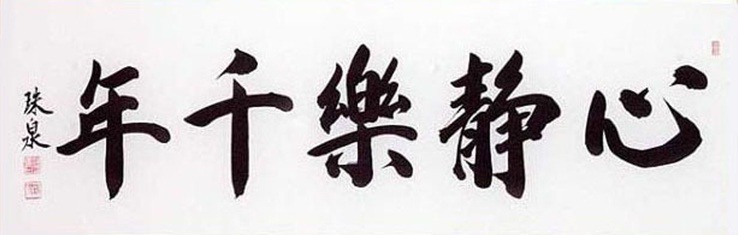 心静樂千年
珠泉